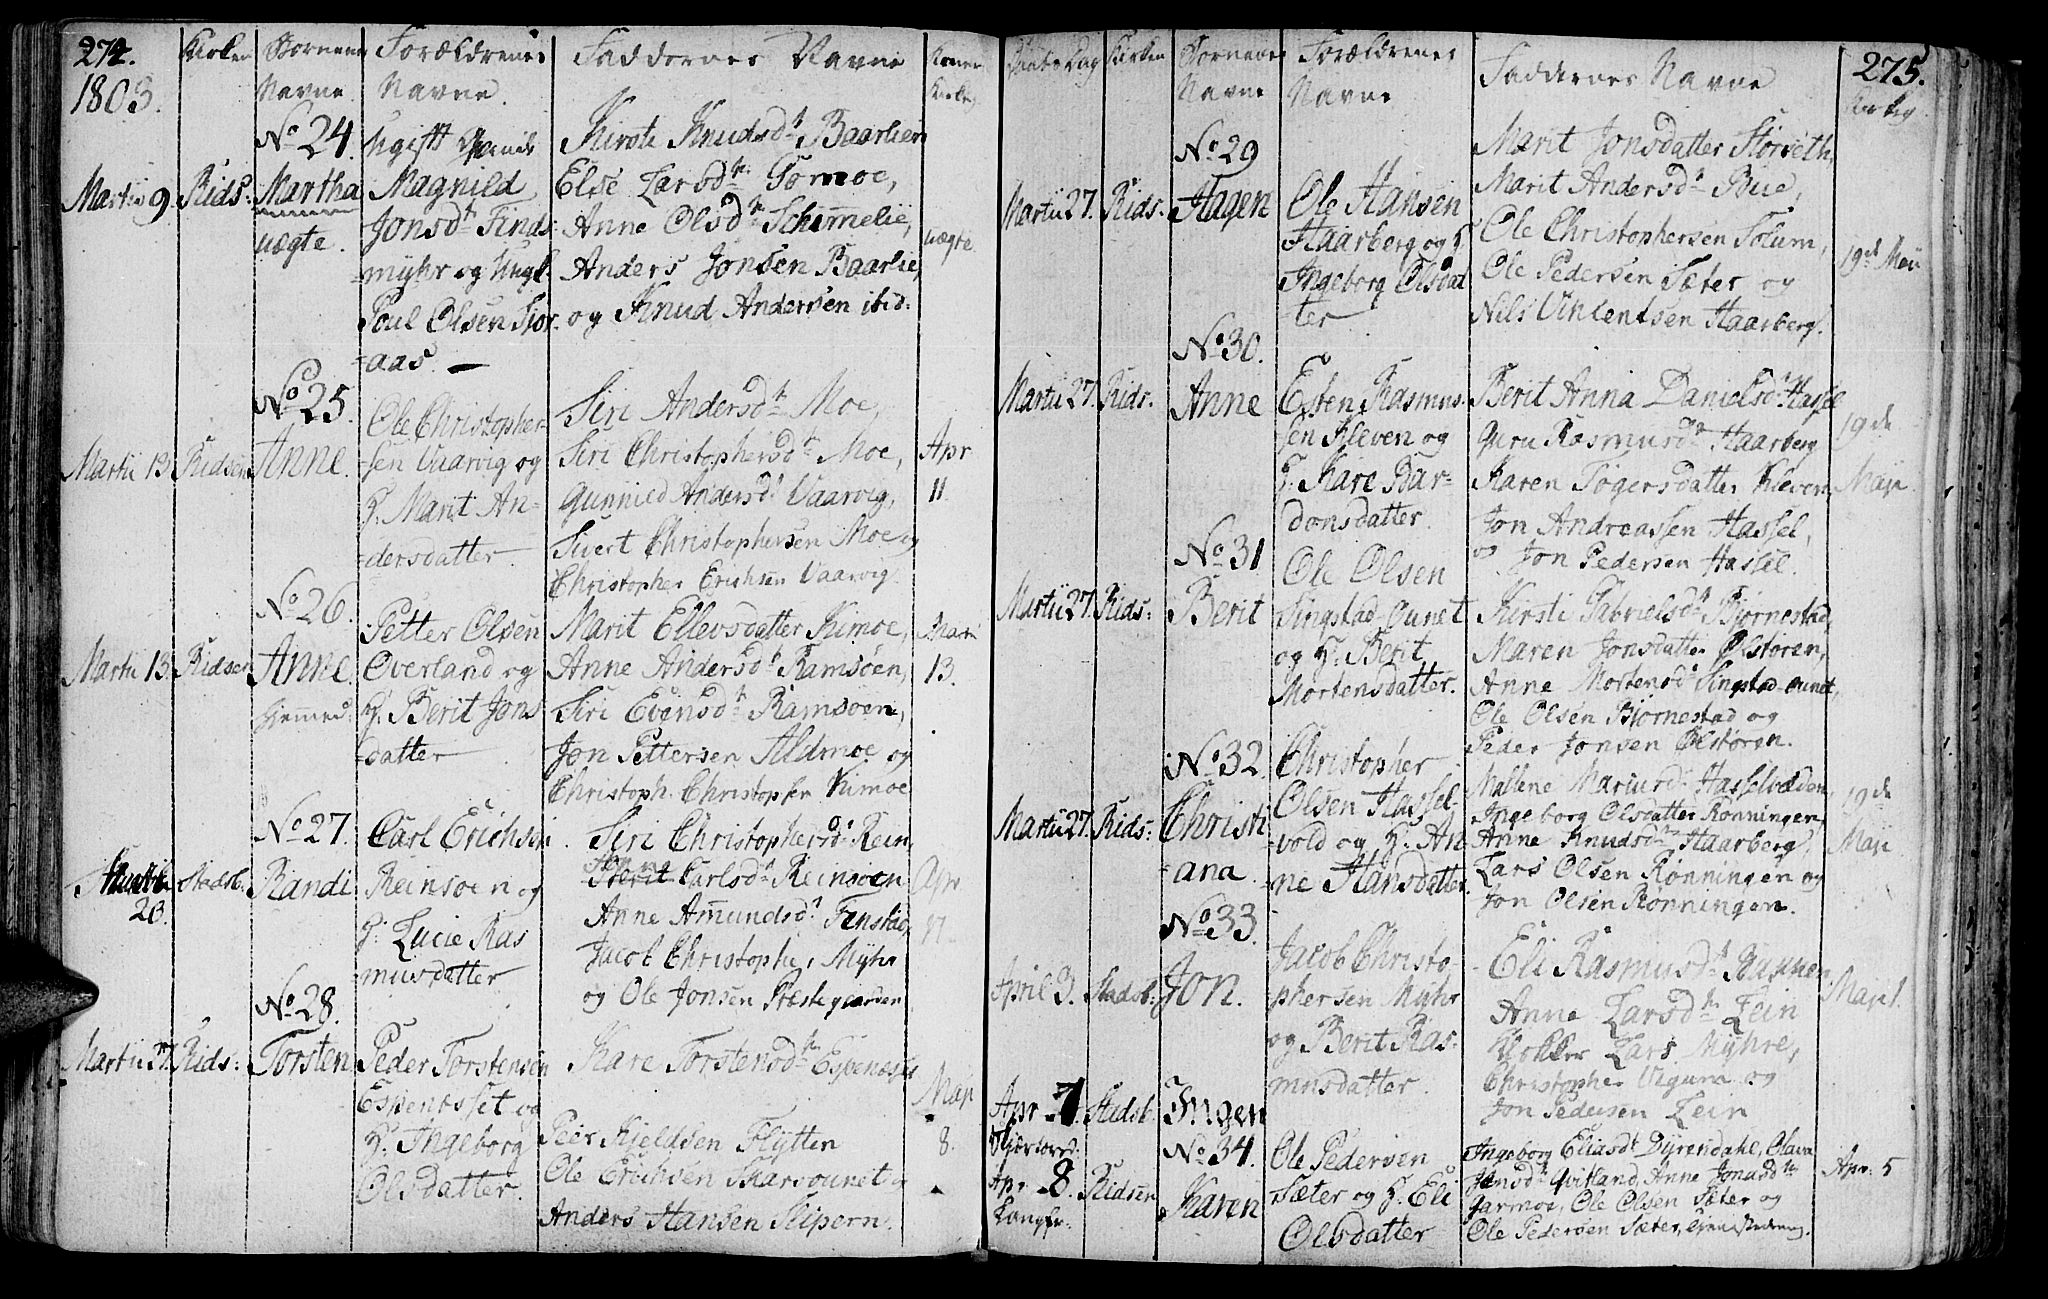 274.
1803.
Kirken
Børnenes Navne
Forældrenes Navne.
Faddernes Navne
No 24.
Martii 9 Rids: Martha uægte.
Ugift Qvinde
Magnild
Jonsdr Finds=
=myhr og Ungk.
Poul Olsen
=aas. —
Kirsti Knudsdr Baarlien
Else Larsdtr. Tømoe,
Anne Olsdtr Schimelie,
Anders Jonsen Baarlie,
og Knud Andersen ibid:
uægte
No 25
Martii 13 Ridsen Anne.
Ole Christopher-
=sen Vaarvig og
H. Marit An=
=dersdatter
Siri Andersdtr Moe,
Siri Christophersdtr Moe,
Gunnild Andersdr Vaarvig,
Sivert Christophersen Moe og
Christopher Erichsen Vaarvig.
Apr
11
No 26.
Martii 13. Ridsen Anne
hjemmed:
Petter Olsen
Overland og
H. Berit Jons
=datter
Marit Ellevsdatter Kimoe,
Anne Andersdr Ramsøen,
Siri Evensdtr Ramsøen,
Jon Pettersen Aldmoe og
Christoph. Christopher Kimoe
13.
No 27.
20. Stadsb. Randi
Carl Erichsen
Reinsøen og
H. Lucie Ras
musdatter
Siri Christophersdr. Rein
Carlsdr Reinsøen
Anne Amundsdr. Fenstad,
Jacob Christopher Myhr
og Ole Jonsen Præstegaarden
Apr
17
No 28.
Martii 27. Rids: Torsten
Peder Torstensen
Espenæsset og
H. Ingeborg
Olsdatter.
Kare Torstensdtr Espenæsset
Peer Kjeldsen Flytten
Ole Erichsen Skarsounet og
Anders Hansen Slipern.
Maji
8.
275.
Daabs Dag
Kirken
Børnenes Navne
Forældrenes Navne
Faddernes Navne
No 29
Martii 27. Rids. Hagen
Ole Hansen
Haarberg og H.
Ingeborg Olsdat
ter
Marit Jonsdatter Størseth,
Marit Andersdr Bue,
Ole Christophersen Solum,
Ole Pedersen Sæter og
Nils Vincentsen Haarberg.
19de Maii
No 30.
Martii 27. Rids. Anne
Esten Rasmus.
sen Kleven og
H. Kare Bar=
donsdatter.
Berit Anna Danielsdr. Hassel
Guru Rasmusdr Haarberg
Karen Tøgersdatter Kleven,
Jon Andreassen Hassel,
og Jon Pedersen Hassel.
19de
Maji
No 31
Martii 27. Rids: Berit
Ole Olsen
Singstad=ounet
og H. Berit
Mortensdatter.
Kirsti Gabrielsdtr Bjørnestad,
Maren Jonsdatter Ølstøren,
Anne Mortensdr Singstad=ounet,
Ole Olsen Bjørnestad og
Peder Jonsen Ølstøren.
No 32.
Martii 27. Rids: Christi
=ana
Christopher
Olsen Hassel-
vold og H. An
=ne Hansdatter.
Mallene Hasselvolden,
Ingeborg Olsdatter Rønningen,
Anne Knudsdtr Haarberg,
Lars Olsen Rønningen og
Jon Olsen Rønningen.
19de
Maji
No 33.
April 3. Stadsb: Jon.
Jacob Christo-
phersen Myhr
og Berit Ras=
musdatter.
Eli Rasmusdtr
Anne Larsdtr Lein
Klokker Lars Myhre,
Christopher Viguna og
Jon Pedersen Lein
Maji 1.
Apr 7 Stadsb. Ingen
No 34.
Apr. 8. Ridsen Karen
Langfr.
Ole Pedersen
Sæter og H. Eli
Olsdatter
Ingeborg Eliasdr Dyrendahl, Olava
Jensdtr Qvitland, Anne Jonasdtr
Garmoe, Ole Olsen Sæter og
Ole Pedersen Sæter,
Apr. 5